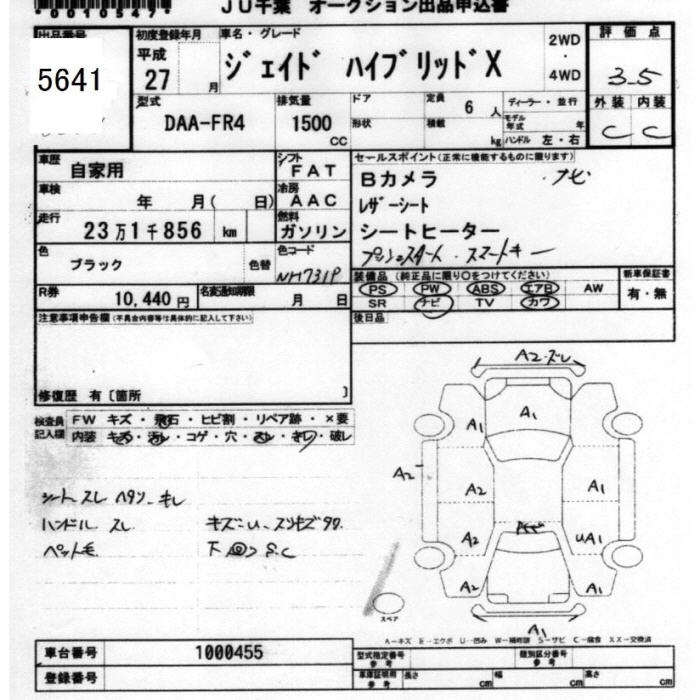 *0010547*
JU千葉 オークション出品申込書
出品番号
5641
初度登録年月
平成
27 月
車名・グレード
ジェイド ハイブリッドX
2WD
・
4WD
評価点
3.5
外装 内装
C C
型式
DAA-FR4
排気量
1500
cc
ドア
形状
定員 6 人
積載 kg
ディーラー・並行
モデル年式 年
ハンドル 左・右
車歴
自家用
シフト
FAT
車検
年 月( 日)
冷房
AAC
走行
23万1千856 km
燃料
ガソリン
色
ブラック
色替
色コード
NH731P
R券
10,440円
名変通知期限
月 日
セールスポイント(正常に機能するものに限ります)
Bカメラ ナビ
レザーシート
シートヒーター
プッシュスタート、スマートキー
装備品(純正品に限り○をつけてください)
PS PW ABS エアB AW
SR ナビ TV カワ
新車保証書
有・無
後日品
注意事項申告欄(不具合内容等は具体的に記入して下さい)
修復歴 有〔箇所 〕
検査員
記入欄
FW キズ・飛石・ヒビ割・リペア跡・×要
内装 キズ・汚レ・コゲ・穴・スレ・キレ・破レ
シートスレ ヘタリ キレ
ハンドル スレ
ペット毛
キズ・U・スリキズタタ
下回リ S.C
A2・ズレ
A1
A1
A2
A2
A1
A2
UA1
A2
A1
A1
スペア
A-キズ E-エクボ U-凹み W-補修跡 S-サビ C-腐食 XX-交換済
車台番号
1000455
登録番号
型式指定番号
参考
類別区分番号
参考
車庫証明用
参考
長さ cm 幅 cm 高さ cm